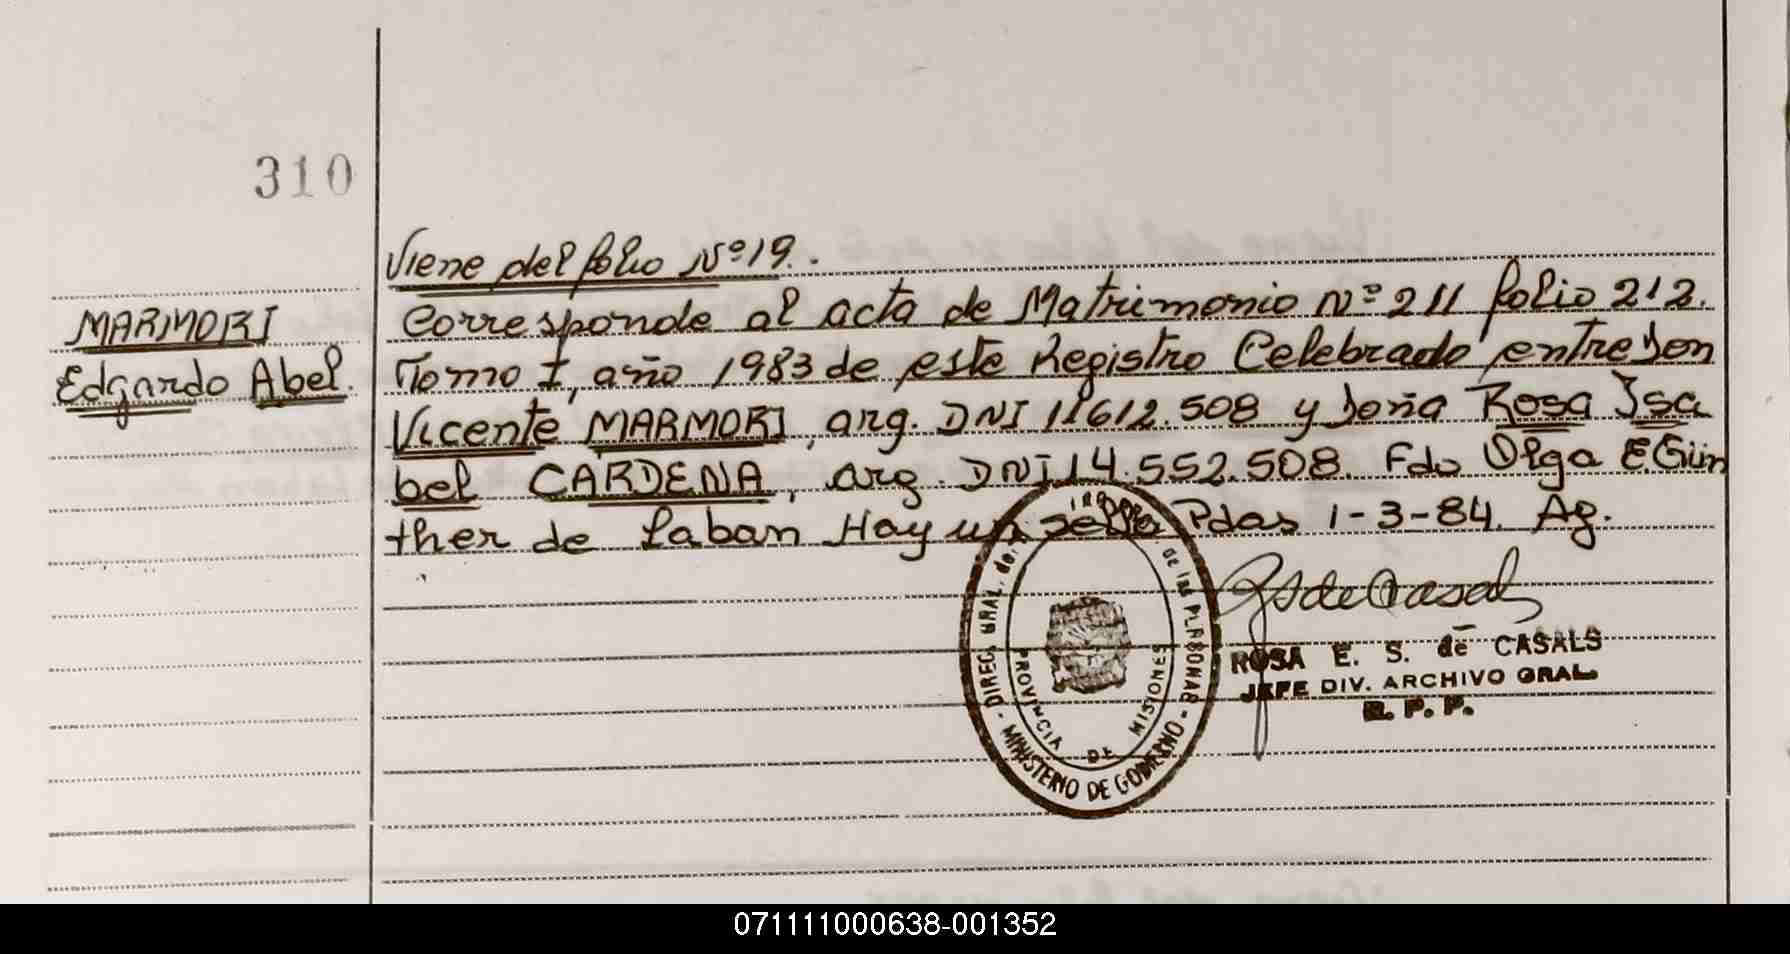 310
Viene del folio Nº 19..
MARMORI
Edgardo Abel.
Corresponde al acta de Matrimonio Nº 211 folio 212.
Tomo I, año 1983 de este Registro Celebrado entre Don
Vicente MARMORI, arg. DNI 11612.508 y Doña Rosa Isa
bel CARDENA, arg. DNI 14.552.508. Fdo Olga E. Gün
ther de Laban Hay un sello Pdas 1-3-84. Ag.
DIREC. GRAL. de de las PERSONAS - MINISTERIO DE GOBIERNO -
PROVINCIA DE MISIONES
ROSA E. S. de CASALS
JEFE DIV. ARCHIVO GRAL.
R. P. P.
071111000638-001352